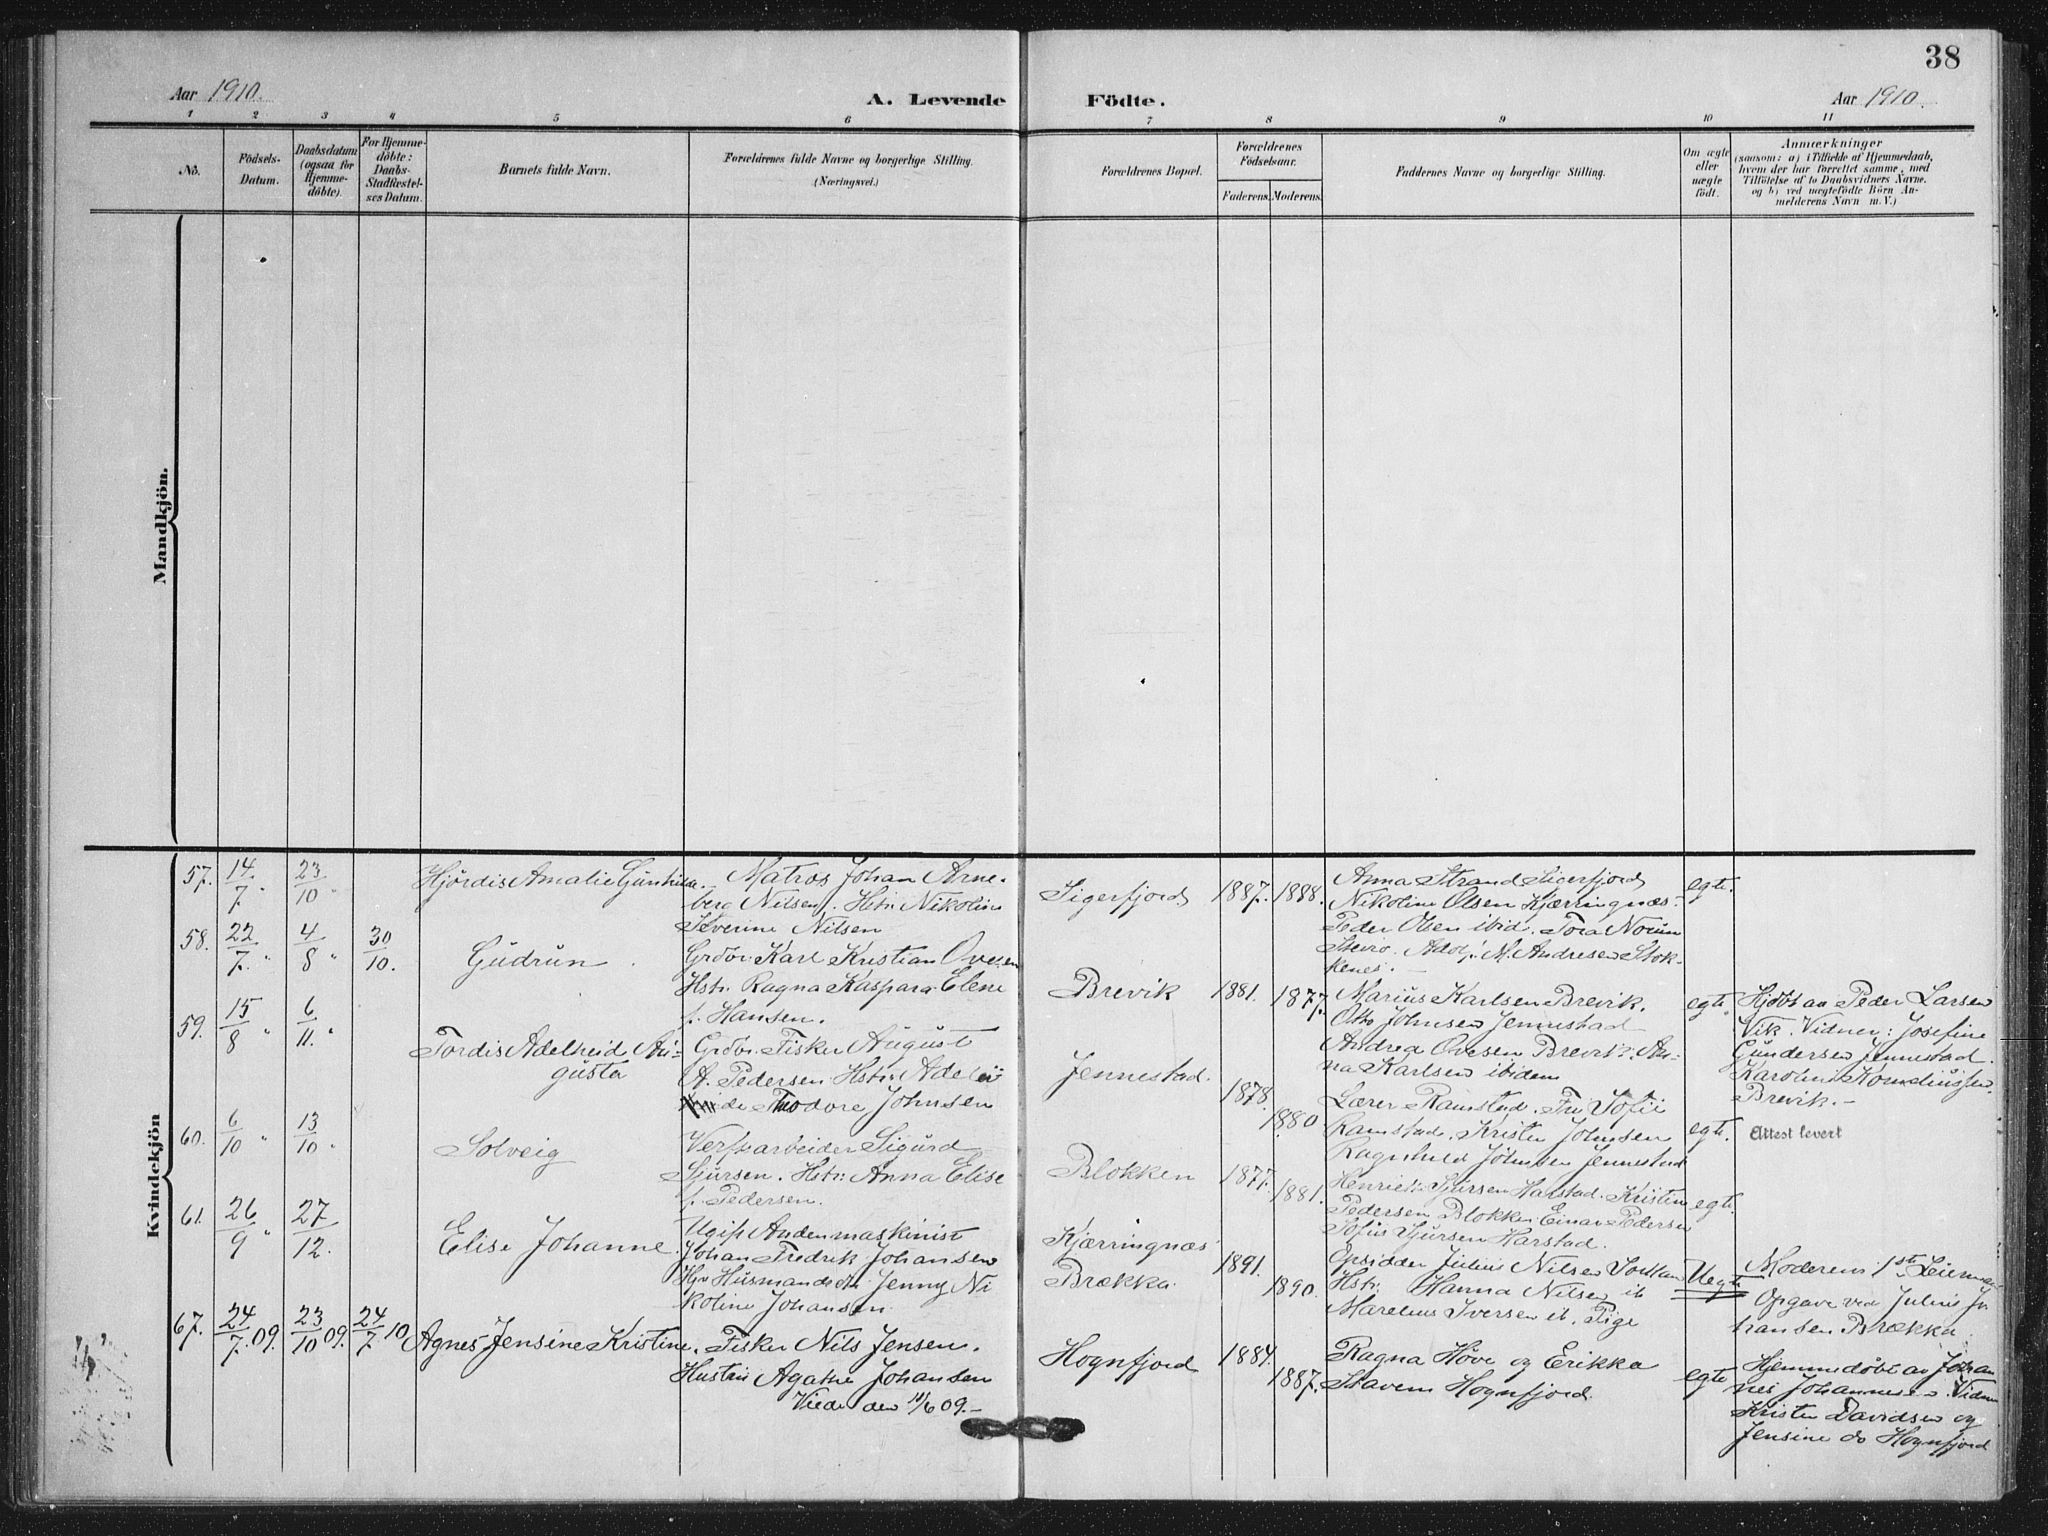 38
Aar 1910.
A. Levende Födte.
Aar 1910.
1 2 3 4 5 6 7 8 9 10 11
No.
Födsels-
Datum.
Daabsdatum
(ogsaa for
Hjemme-
döbte).
For Hjemme-
döbte:
Daabs-
Stadfæstel-
ses Datum.
Barnets fulde Navn.
Forældrenes fulde Navne og borgerlige Stilling.
(Næringsvei.)
Forældrenes Bopæl.
Forældrenes
Födselsaar.
Faderens.
Moderens.
Faddernes Navne og borgerlige Stilling.
Om ægte
eller
uægte
födt.
Anmærkninger
(saasom: a) i Tilfælde af Hjemmedaab,
hvem der har forrettet samme, med
Tilföielse af to Daabsvidners Navne,
og b) ved uægtefödte Börn An-
melderens Navn m. V.)
Mandkjön.
Kvindekjön
57. 14/7 " 23/10 "
Hjördis Amalie Gunhilda.
Matros Johan Arne-
berg Nilsen. Hstr: Nikoline
Severine Nilsen
Sigerfjord
1887. 1888.
Anna Strand Sigerfjord
Nikoline Olsen Kjærringnæs-
Peder Olsen ibid. Tora Norum
Adolf M. Andresen Stok-
kenes.-
egte.
58. 22/7 " 4/8 " 30/10.
Gudrun
Grdbr. Karl Kristian Ovesen
Hstr. Ragna Kaspara Elene
f. Hansen.
Brevik
1881. 1877.
Marius Karlsen Brevik.
Otto Johnsen Jennestad
Andrea Ovesen Brevik. An-
na Karlsen ibidem
egte.
Hjdbt av Peder Larsen
Vik. Vidner: Josefine
Gundersen Jennestad.
Karoline Korneliussen
Brevik.-
59. 15/8 " 6/11. "
Tordis Adelheid Au-
gusta
Grdbr. Fisker August
A. Pedersen Hstr: Adele
Theodore Johnsen
Jennestad.
1878. 1880
Lærer Ramstad. Fru Sofie
Ramstad. Kristen Johnsen
Ragnhild Johnsen Jennestad
egte.
Attest levert
60. 6/10 " 13/10 "
Solveig
Verftsarbeider Sigurd
Sjursen. Hstr: Anna Elise
f. Pedersen.
Blokken
1877. 1881.
Henrik Sjursen Harstad. Kristine
Pedersen Blokken Einar Pedersen
Sofus Sjursen Harstad.
egte.
61. 26/9 " 27/12.
Elise Johanne.
Ugift Andenmaskinist
Johan Fredrik Johansen
Husmandsdtr Jenny Ni
koline Johansen
Kjærringnæs
Brækka.
1891. 1890.
Opsidder Julius Nilsen
Hstr: Hanna Nilsen ib
Marelius Iversen ib. Pige
Uegte
Moderens 1ste Leierm.
Opgave ved Julius Jo
hansen Brækka
67. 24/7.09. 23/10 09. 24/7 10
Agnes Jensine Kristine.
Fisker Nils Jensen.
Hustru Agathe Johansen
Viede den 11/6 09.-
Hognfjord
1884. 1887.
Ragna Höve og Erikka
Stavem Hognfjord.
egte
Hjemmedöbt av Johan
nes Johannesen. Vidner
Kristen Davidsen og
Jensine do Hognfjord